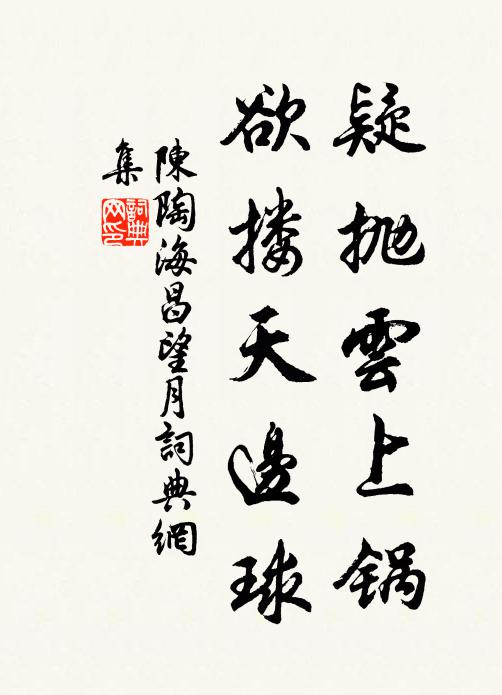 疑抛雲上锅
欲搂天邊球
陳陶海昌望月詞典網
集
詞典網印